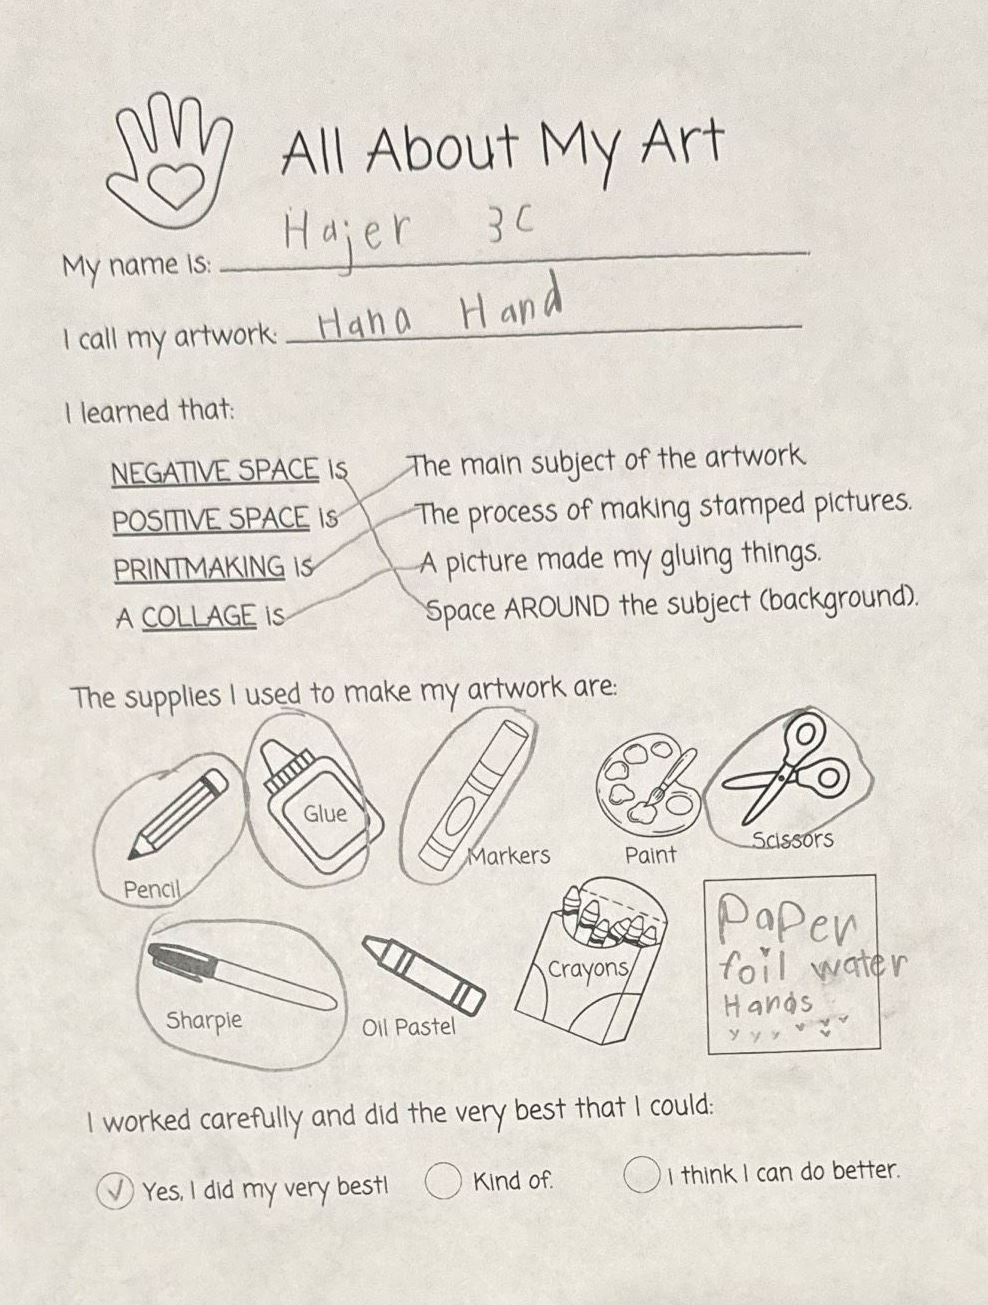 All About My Art
My name is: Hajer 3C
I call my artwork: Hana Hand
I learned that:
NEGATIVE SPACE is The main subject of the artwork
POSITIVE SPACE is The process of making stamped pictures.
PRINTMAKING is A picture made my gluing things.
A COLLAGE is Space AROUND the subject (background).
The supplies I used to make my artwork are:
Glue
Pencil
Markers
Paint
Scissors
Sharpie
Oil Pastel
Crayons
Paper
foil water
Hands
I worked carefully and did the very best that I could:
Yes, I did my very best! Kind of. I think I can do better.